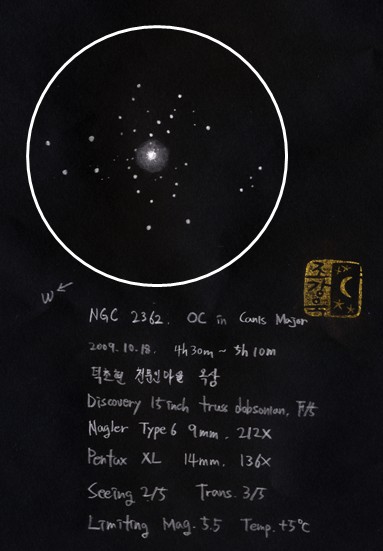 W
NGC 2362. OC in Canis Major
2009. 10. 18. 4h 30m ~ 5h 10m
덕초현 천문인마을 옥상
Discovery 15 inch truss dobsonian, F/5
Nagler Type 6 9mm. 212X
Pentax XL 14mm. 136X
Seeing 2/5 Trans. 3/5
Limiting Mag. 5.5 Temp. +5℃